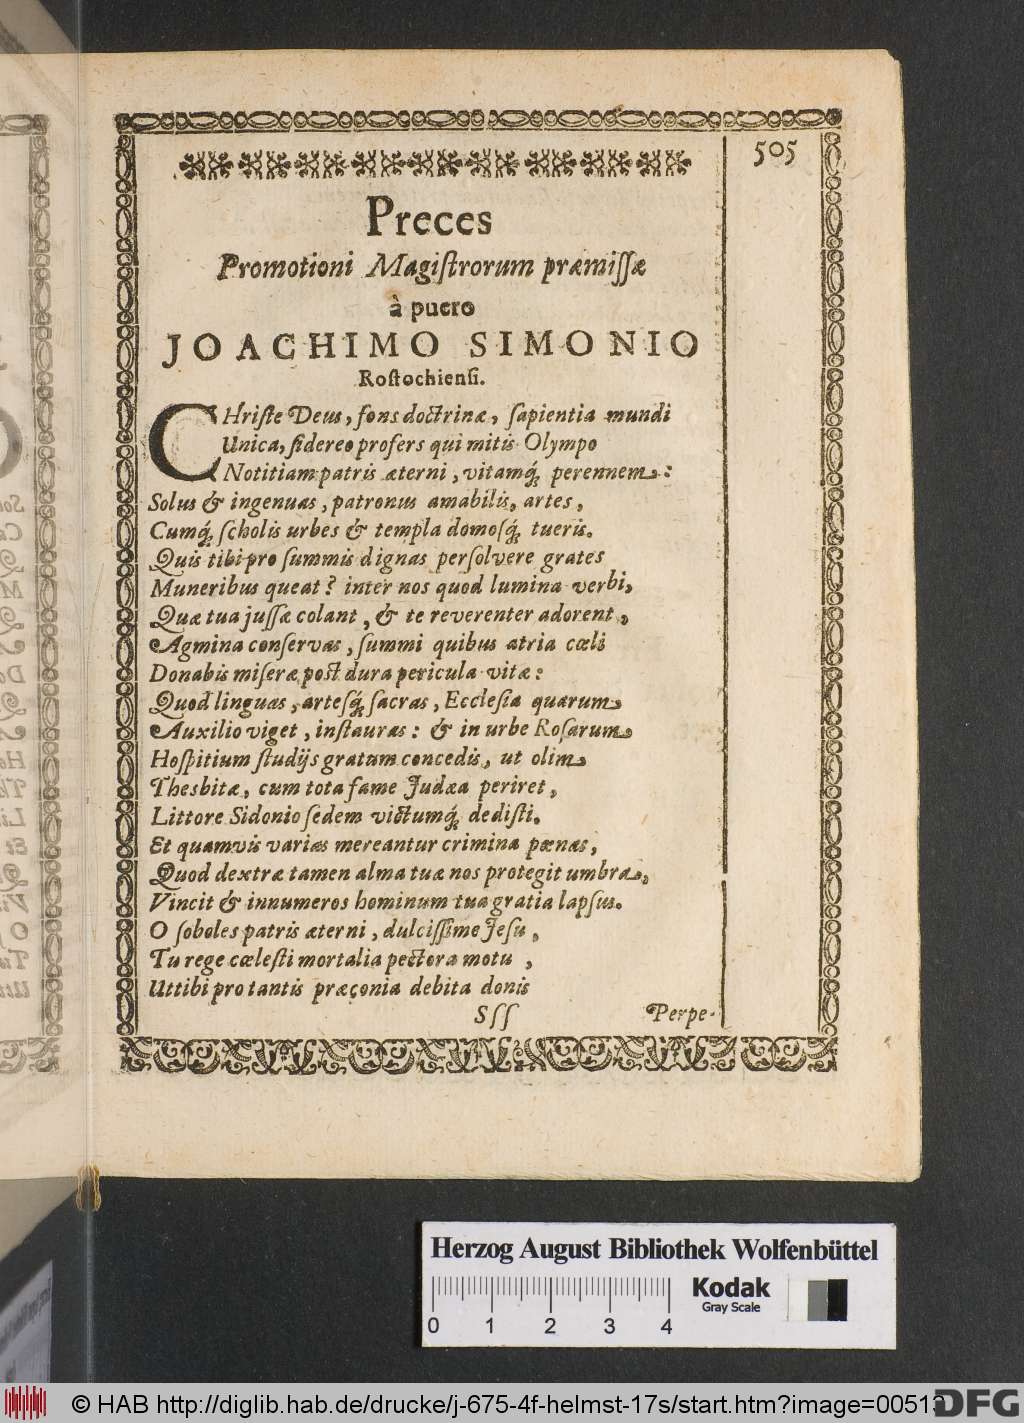 505
Preces
Promotioni Magiſtrorum præmiſſæ
à puero
JOACHIMO SIMONIO
Roſtochienſi.
CHriſte Deus, fons doctrinæ, ſapientia mundi
Unica, ſidereo profers qui mitis Olympo
Notitiam patris æterni, vitamq́; perennem:
Solus & ingenuas, patronus amabilis, artes,
Cumq́; ſcholis urbes & templa domoſq́; tueris.
Quis tibi pro ſummis dignas perſolvere grates
Muneribus queat? inter nos quod lumina verbi,
Quæ tua juſſa colant, & te reverenter adorent,
Agmina conſervas, ſummi quibus atria cœli
Donabis miſeræ poſt dura pericula vitæ:
Quod linguas, arteſq́; ſacras, Eccleſia quarum
Auxilio viget, inſtauras: & in urbe Roſarum
Hoſpitium ſtudijs gratum concedis, ut olim
Thesbitæ, cum tota fame Judæa periret,
Littore Sidonio ſedem victumq́; dediſti.
Et quamvis varias mereantur crimina pœnas,
Quod dextræ tamen alma tuæ nos protegit umbra,
Vincit & innumeros hominum tua gratia lapſus.
O ſoboles patris æterni, dulciſſime Jeſu,
Tu rege cœleſti mortalia pectora motu,
Ut tibi pro tantis præçonia debita donis
Sſſ Perpe-
Herzog August Bibliothek Wolfenbüttel
Kodak
Gray Scale
0 1 2 3 4
© HAB http://diglib.hab.de/drucke/j-675-4f-helmst-17s/start.htm?image=00513
DFG